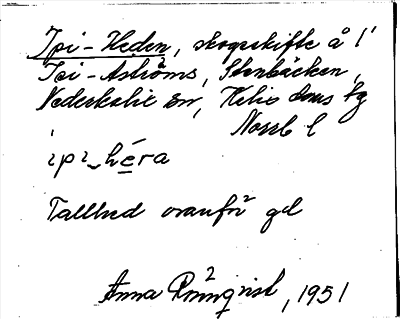 Ipi-Heden, skogsskifte å l'
Ipi-Aströms, Stenbäcken,
Nederkalix sn, Kalix doms hg
Norrb l
ıpı_héra
Tallhed ovanför gd
Anna Rönnqvist, 1951